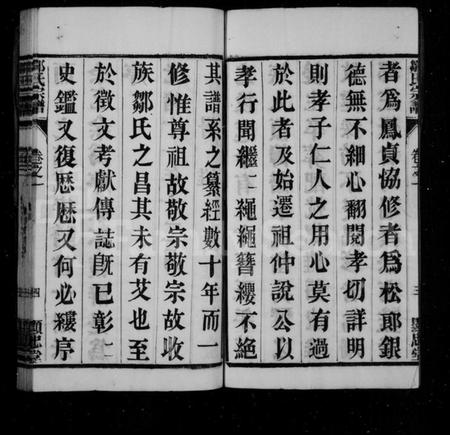 者為鳳貞協修者為松郎銀
德無不細心翻閱孝切詳明
則孝子仁人之用心莫有過
於此者及始遷祖仲說公以
孝行聞繼二繩繩簪纓不絕
其譜系之纂經數十年而一
修惟尊祖故敬宗敬宗故收
族鄒氏之昌其未有艾也至
於徵文考獻傳誌旣已彰二
史鑑又復歷歷又何必縷序
鄒氏宗譜
卷之一
四